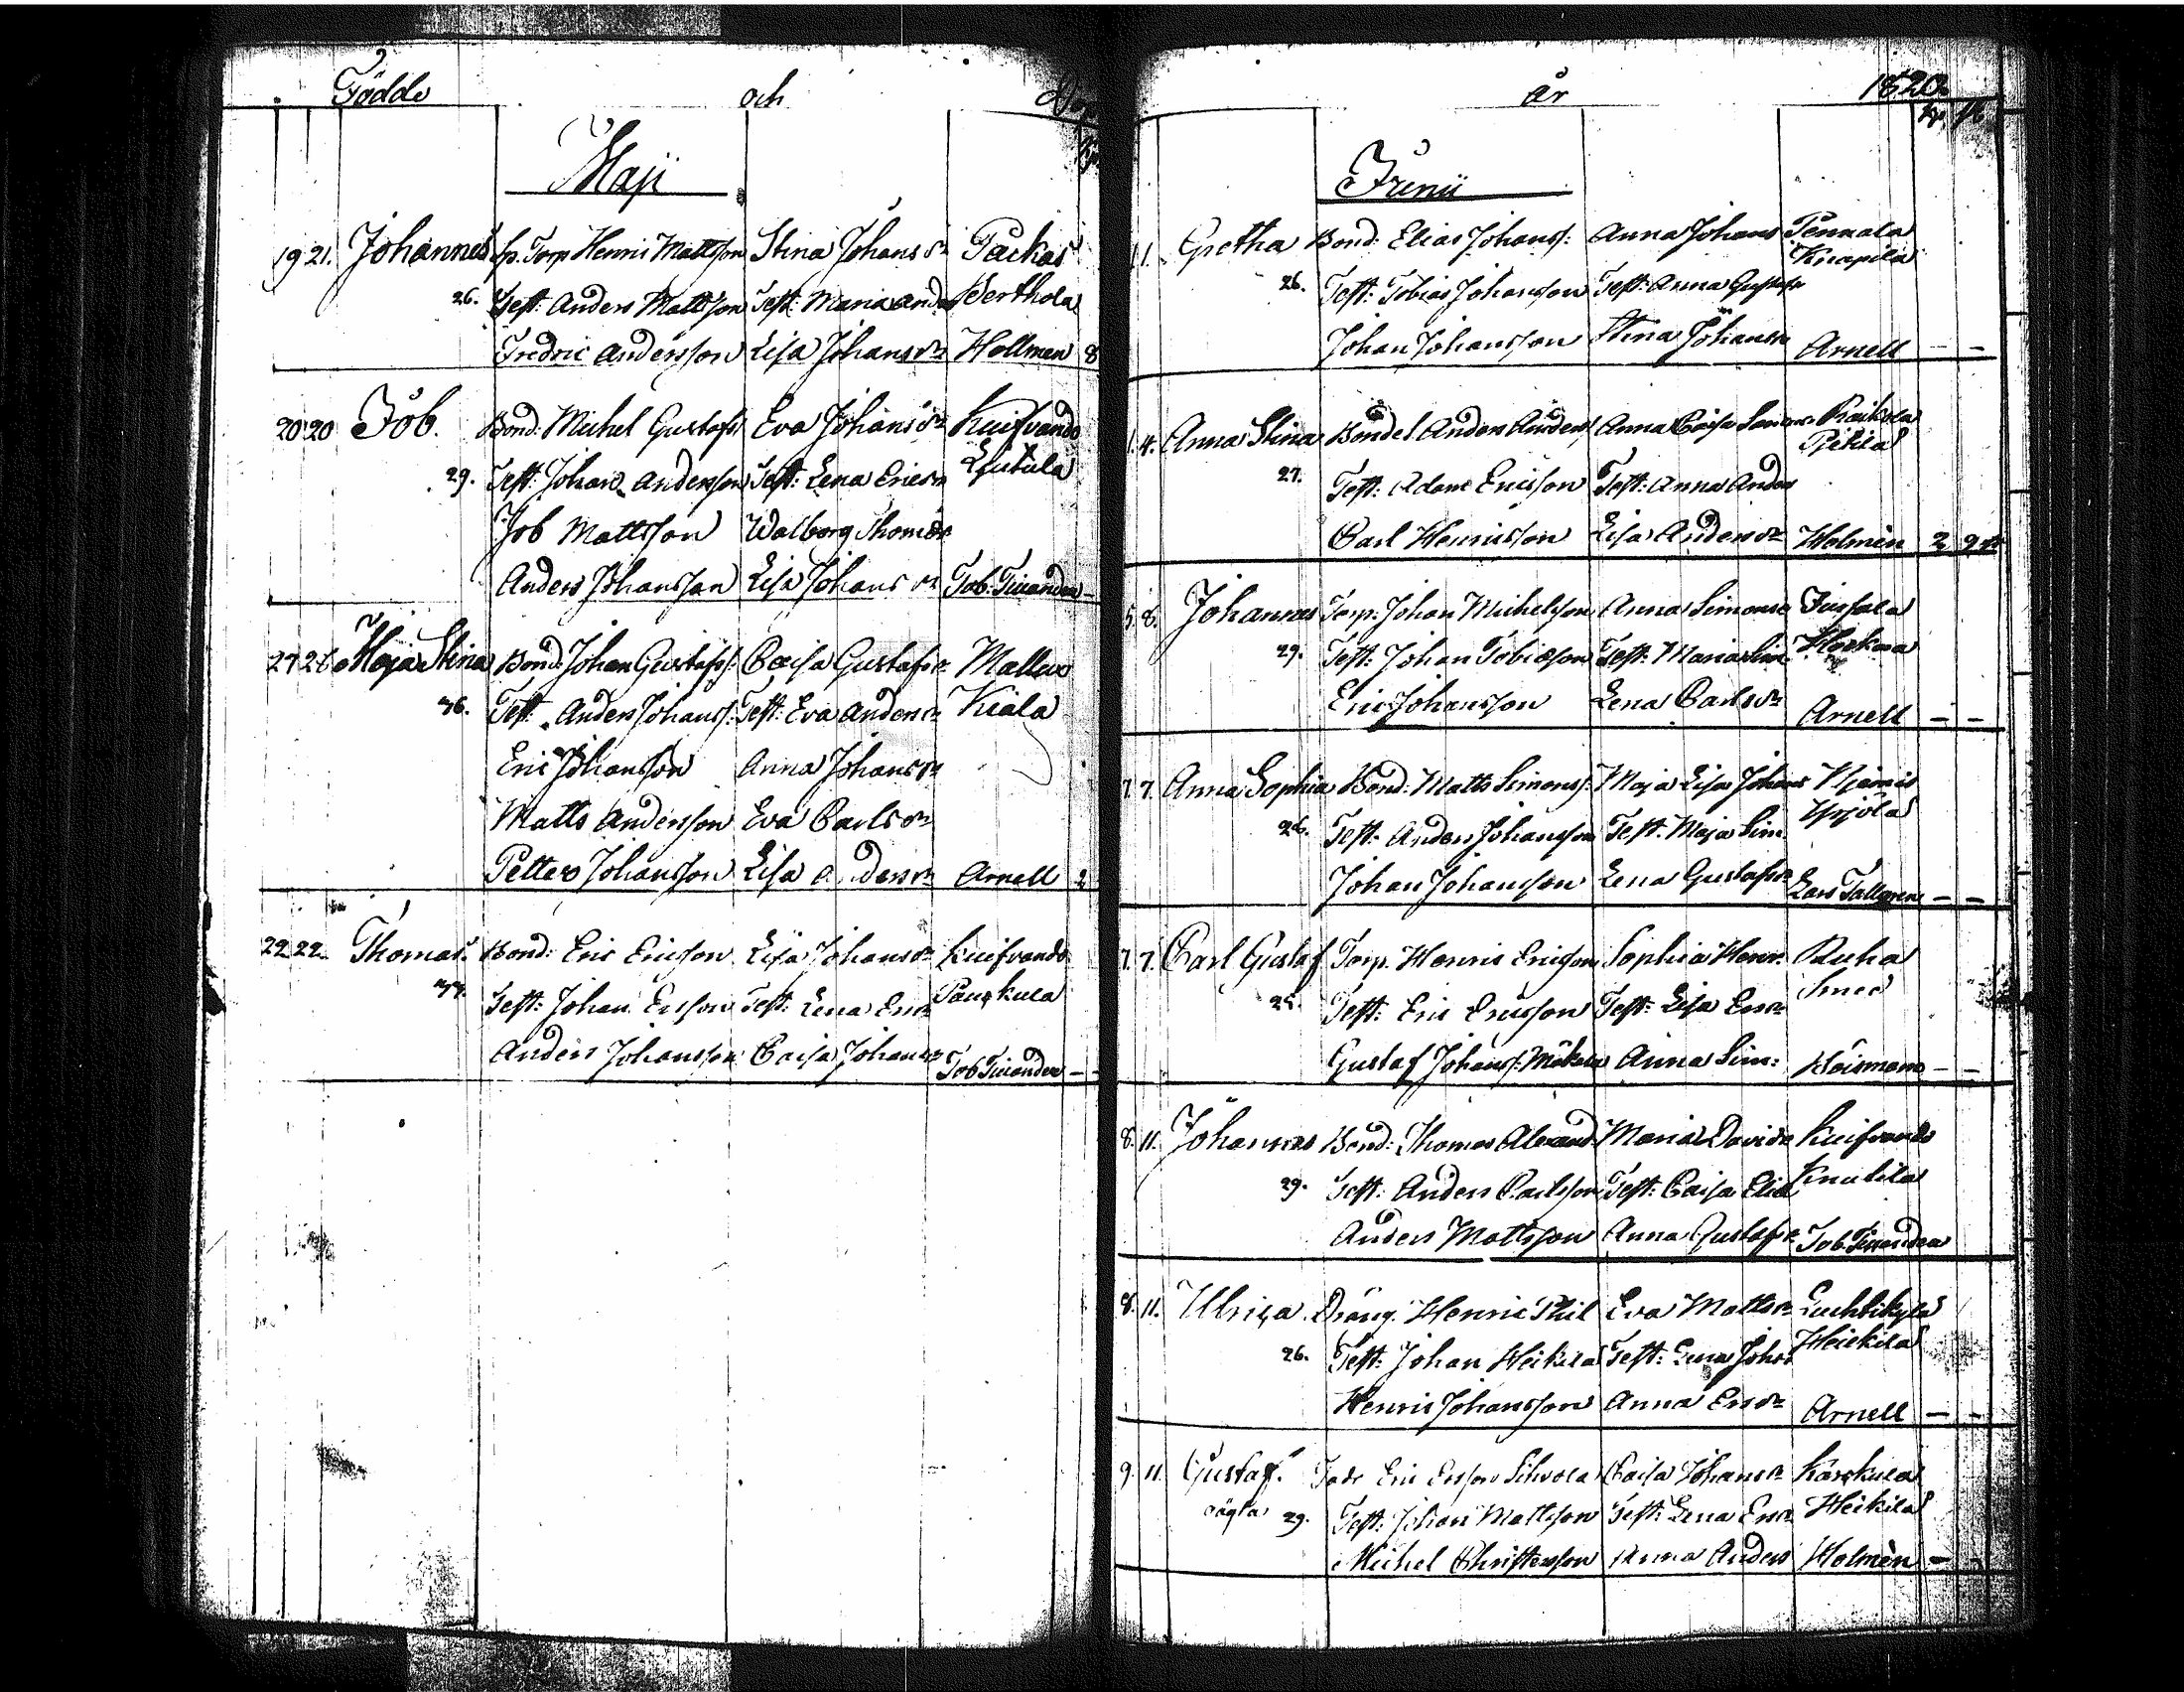 Födde och Döp
Maji
19 21. Johannes sp. Torp Henric Mattsson Stina Johans dr Packas
26. Test: Anders Mattsson Test: Maria Ander Berthola
Fredric Andersson Lisa Johans dr Hollmen 8
20 20 Job. Bond: Michel Gustafs: Eva Johans dr Kuifvando
29. Test: Johan Andersson Test: Lena Erics dr
Job Mattsson Walborg Thomdr
Anders Johansson Lisa Johans dr Job: Tinander -
27 28 Maja Stina Bond: Johan Gustafs: Caisa Gustafs dr Mallus
36. Test: Anders Johans: Test: Eva Anders dr Kiala
Eric Johansson Anna Johans dr
Matts Andersson Eva Carls dr
Petter Johansson Lisa Anders dr Arnell 2
22 22 Thomas. Bond: Eric Ericson Lisa Johans dr Kuifvando
37. Test: Johan Ersson Test: Lena Ersdr Pauskula
Anders Johansson Caisa Johansdr Job Tinander - -
år 1820.
Junii
1. 1. Gretha Bond: Elias Johans: Anna Johans Pennala
Knapila
26. Test: Tobias Johansson Test: Anna Gustafs
Johan Johansson Stina Johansdr Arnell - -
1. 4. Anna Stina Bondel Anders Anders Anna Caisa Raikola
27. Test: Adam Ericsson Test: Anna Anders
Carl Henricsson Lisa Anders dr Holmèn 2 9
5. 8. Johannes Torp: Johan Michelson Anna Simonsd
29. Test: Johan Tobiasson Test: Maria Sim
Eric Johansson Lena Carls dr Arnell - -
7. 7. Anna Sophia Bond: Matts Simons: Maja Lisa Johans Njemis
26. Test: Anders Johansson Test: Maja Sim Ypjola
Johan Johansson Lena Gustafsdr Lars Tallgren - -
7. 7. Carl Gustaf Torp. Henric Ericson Sophia Henr. Ruha
25. Test: Eric Ericsson Test: Lisa Ersdr
Gustaf Johans: Anna Sim: Höisman - -
8. 11. Johannes Bond: Thomas Alexand: Maria Davidsdr Kuifvando
29. Test: Anders Carlsson Test: Caisa Elia Knutila
Anders Mattsson Anna Gustafsdr Job Tinander
8. 11. Ulrica Dräng. Henric Phil Eva Matts dr Luchtikylä
26. Test: Johan Heikila Test: Lena Johs Heickila
Henric Johansson Anna Ers dr Arnell - -
9. 11 Gustaf. Fadr Eric Ersson Caisa Johans dr Karskula
oägta 29. Test: Johan Mattsson Test: Lena Ersdr Heikila
Michel Christersson Anna Anders Holmèn -